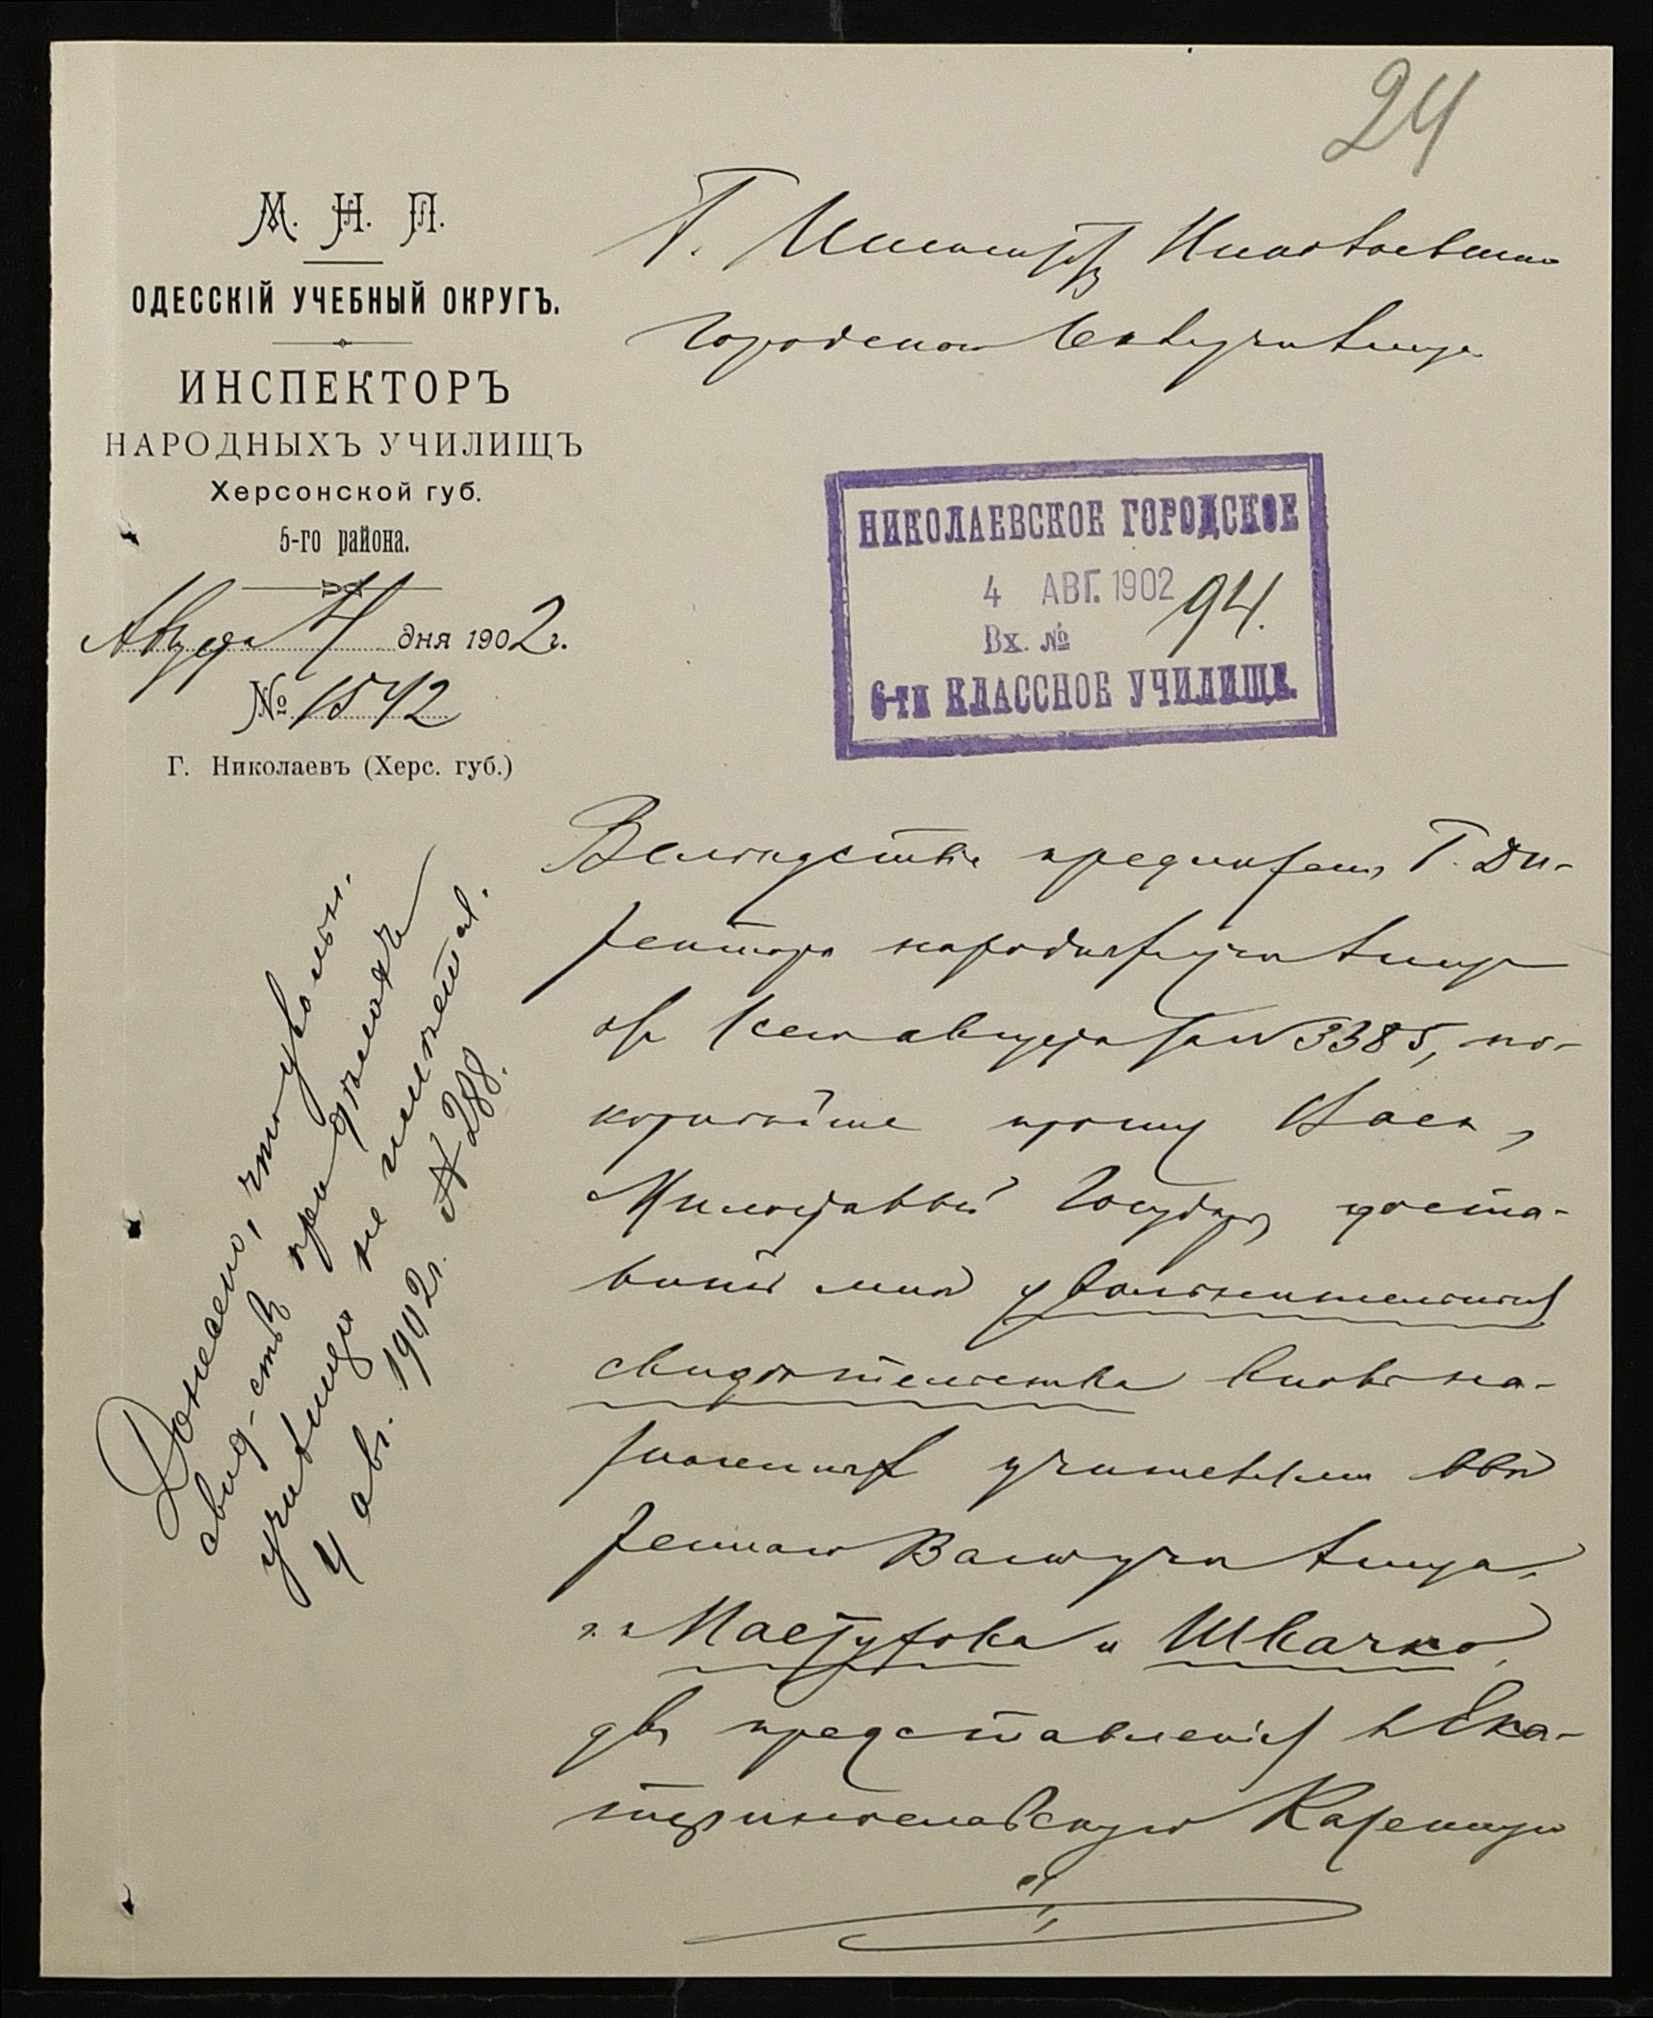 24
М. Н. П.
ОДЕССКІЙ УЧЕБНЫЙ ОКРУГЪ.
ИНСПЕКТОРЪ
НАРОДНЫХЪ УЧИЛИЩЪ
Херсонской губ.
5-го района.
Августа 4 дня 1902 г.
№ 1542
Г. Николаевъ (Херс. губ.)
Г. Инспектору Николаевскаго
Городского 6 кл училища
НИКОЛАЕВСКОЕ ГОРОДСКОЕ
4 АВГ. 1902
Вх. № 94.
6-ти КЛАССНОЕ УЧИЛИЩЕ.
Вслѣдствіе предложенія Г. Ди-
ректора народныхъ училищъ
отъ 1 сего августа за № 3385, по-
корнѣйше прошу Васъ,
Милостивый Государь, доста-
вить мнѣ увольнительныя
свидѣтельства вновь на-
значенныхъ учителями ввѣ
реннаго Вамъ училища,
г.г. Мастукова и Швачко,
для представленія въ Ека-
теринославскую Казенную
Донесено, что увольн.
свид-ствъ при дѣлахъ
училища не имѣется.
4 авг. 1902 г. № 288.